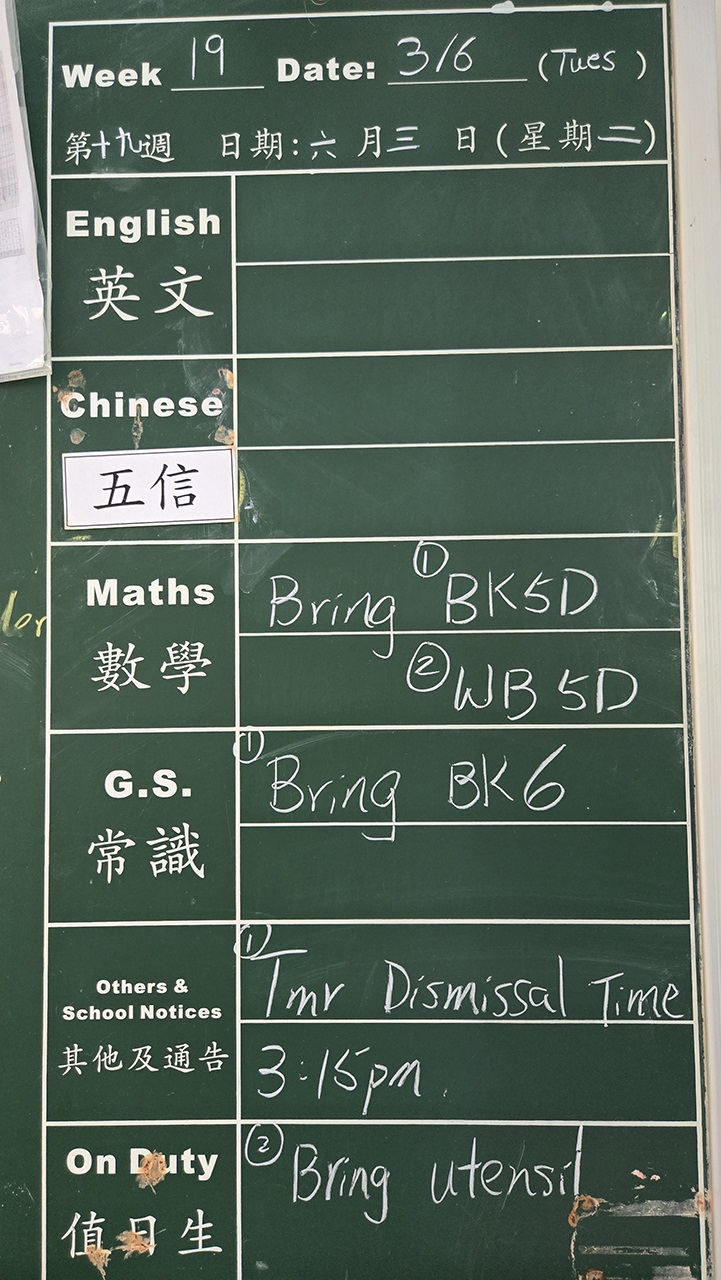 Week 19 Date: 3/6 (Tues)
第十九週 日期:六月三日(星期二)
English
英文
Chinese
五信
Maths
Bring ① BK5D
數學
② WB 5D
G.S.
① Bring BK6
常識
Others &
School Notices
① Tmr Dismissal Time
其他及通告
3:15pm
On Duty
② Bring utensil
值日生
lor